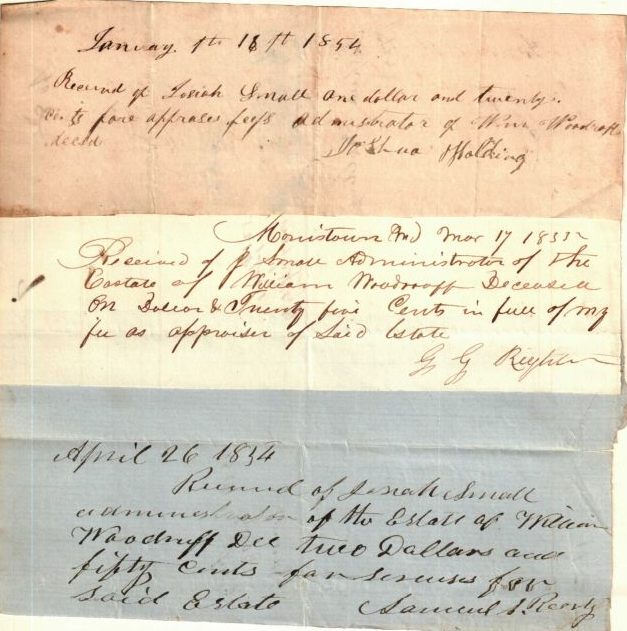 January. th 18 th 1854
Receivd of Josiah Small one dollar and twenty
cents fore apprases fees administrator of Wm Woodruff
decsd
Joshua Spalding
Morristown Mar 17 1855
Received of J Small Administrator of the
Eastate of William Woodroof Deceased
On Dollar & Twenty five Cents in full of my
fee as appraiser of Said Estate
G G
April 26 1854
Received of Josiah Small
administrator of the Estate of William
Woodruff Dec two Dollars and
fifty Cents for servises for
Said Estate Samuel